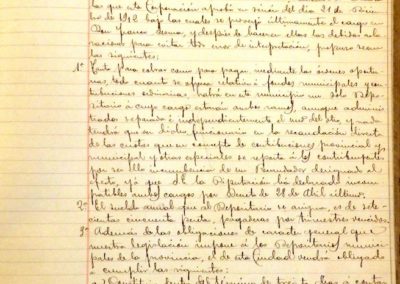 la que esta Corporación aprobó en sesión del día 21 de Diciem-
bre de 1912 bajo las cuales se proveyó últimamente el cargo en
Don Juan, y después de hacer en ellas las debidas acla-
raciones para evitar todo error de interpretación, propuso sean
las siguientes:
1ª Tanto para cobrar como para pagar, mediante las órdenes oportu-
nas, todo cuanto se refiera relación a fondos municipales y con-
tribuciones ordinarias, habrá en este municipio un solo Depo-
sitario a cuyo cargo estarán ambos ramos, aunque adminis-
trados separada e independientemente el uno del otro, y no
tendrá que ver dicho funcionario en la recaudación directa
de las cuotas que en concepto de contribuciones provincial y
municipal y otras especiales se reparta a los contribuyentes
por ser ello incumbencia de un Recaudador designado al
efecto, ya que la Diputación ha declarado incom-
patibles ambos cargos por Decreto de 28 de Abril último.
2ª El sueldo anual que al Depositario se asigna, es de sete-
cientas cincuenta pesetas, pagaderas por trimestres vencidos.
3ª Además de las obligaciones de carácter general que
nuestra legislación impone a los Depositarios munici-
pales de la provincia, el de esta Ciudad vendrá obligado
a cumplir las siguientes: